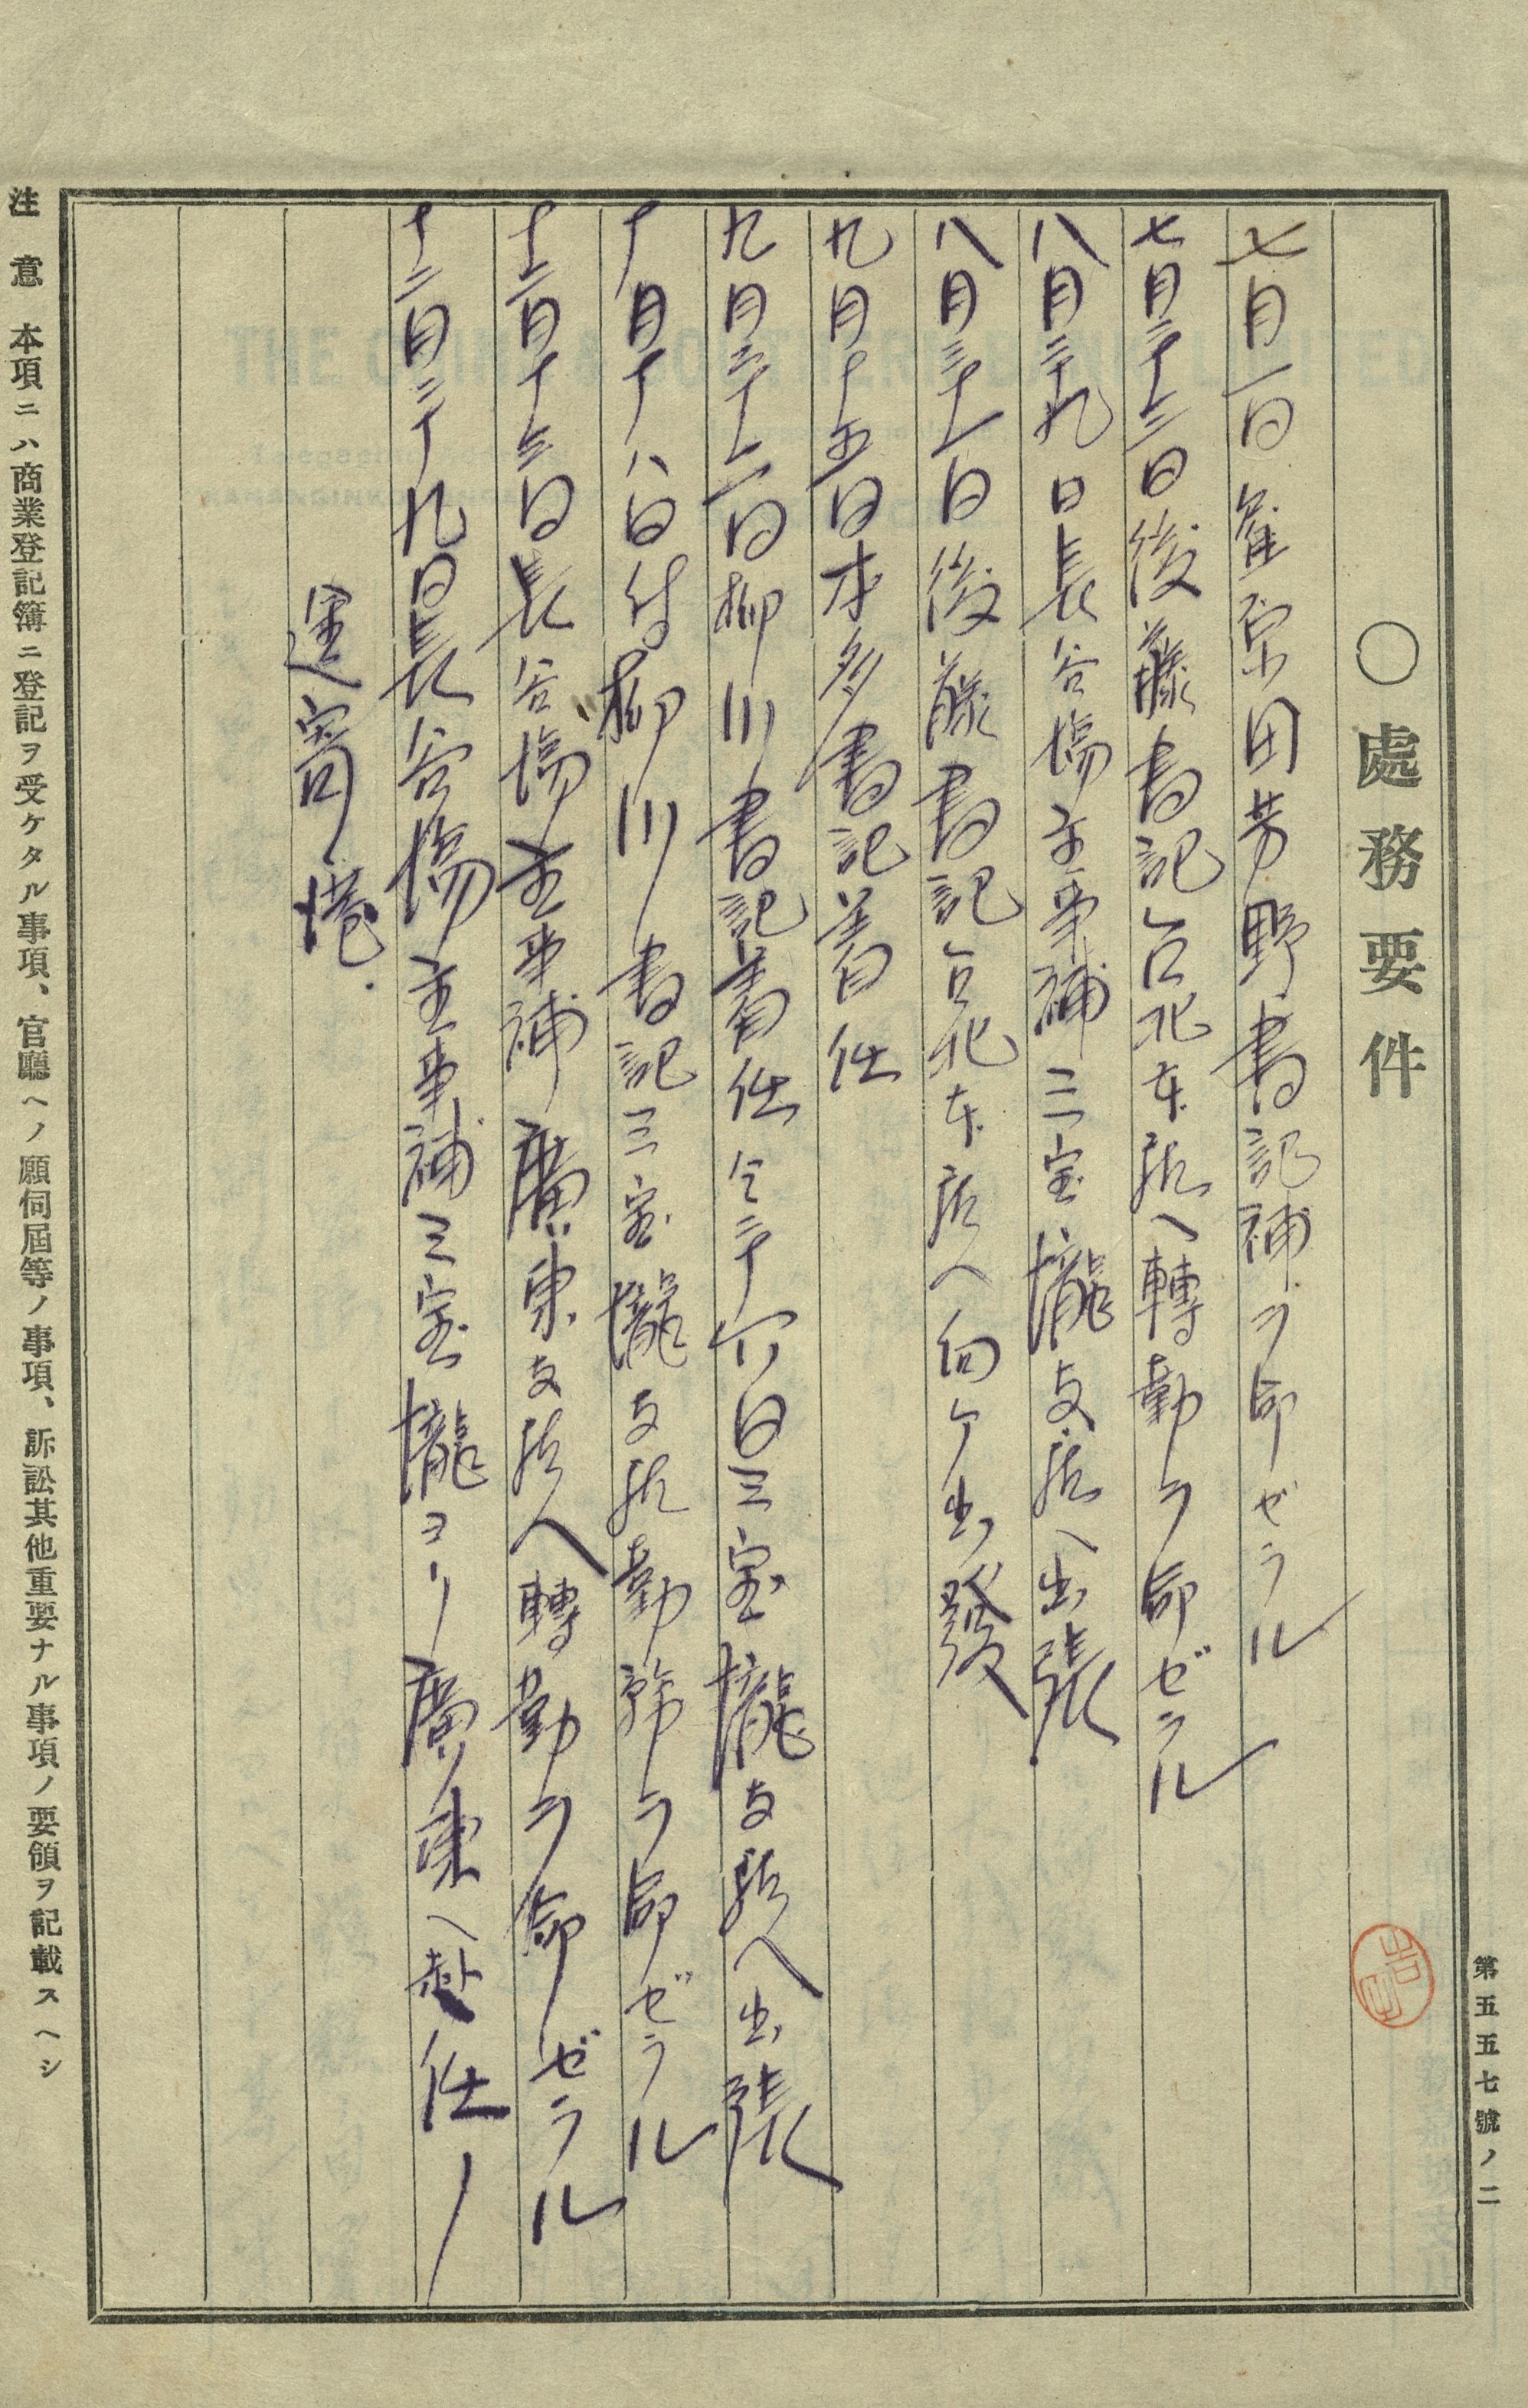 第五五七號ノ二
〇處務要件
七月一日雇原田芳野書記補ヲ命ゼラル
七月二十三日後藤書記台北本店ヘ轉勤ヲ命ゼラル
八月二十九日長谷場主事補三宝壠支店ヘ出張
八月三十一日後藤書記台北本店ヘ向ケ出發
九月十五日本多書記着任
九月二十二日柳川書記着任仝二十六日三宝壠支店ヘ出張
十月十八日付柳川書記三宝壠支店勤務ヲ命ゼラル
十二月十三日長谷場主事補廣東支店ヘ轉勤ヲ命ゼラル
十二月二十九日長谷場主事補三宝壠ヨリ廣東ヘ赴任ノ
途寄港.
注意 本項ニハ商業登記簿ニ登記ヲ受ケタル事項、官廳ヘノ願伺屆等ノ事項、訴訟其他重要ナル事項ノ要領ヲ記載スヘシ